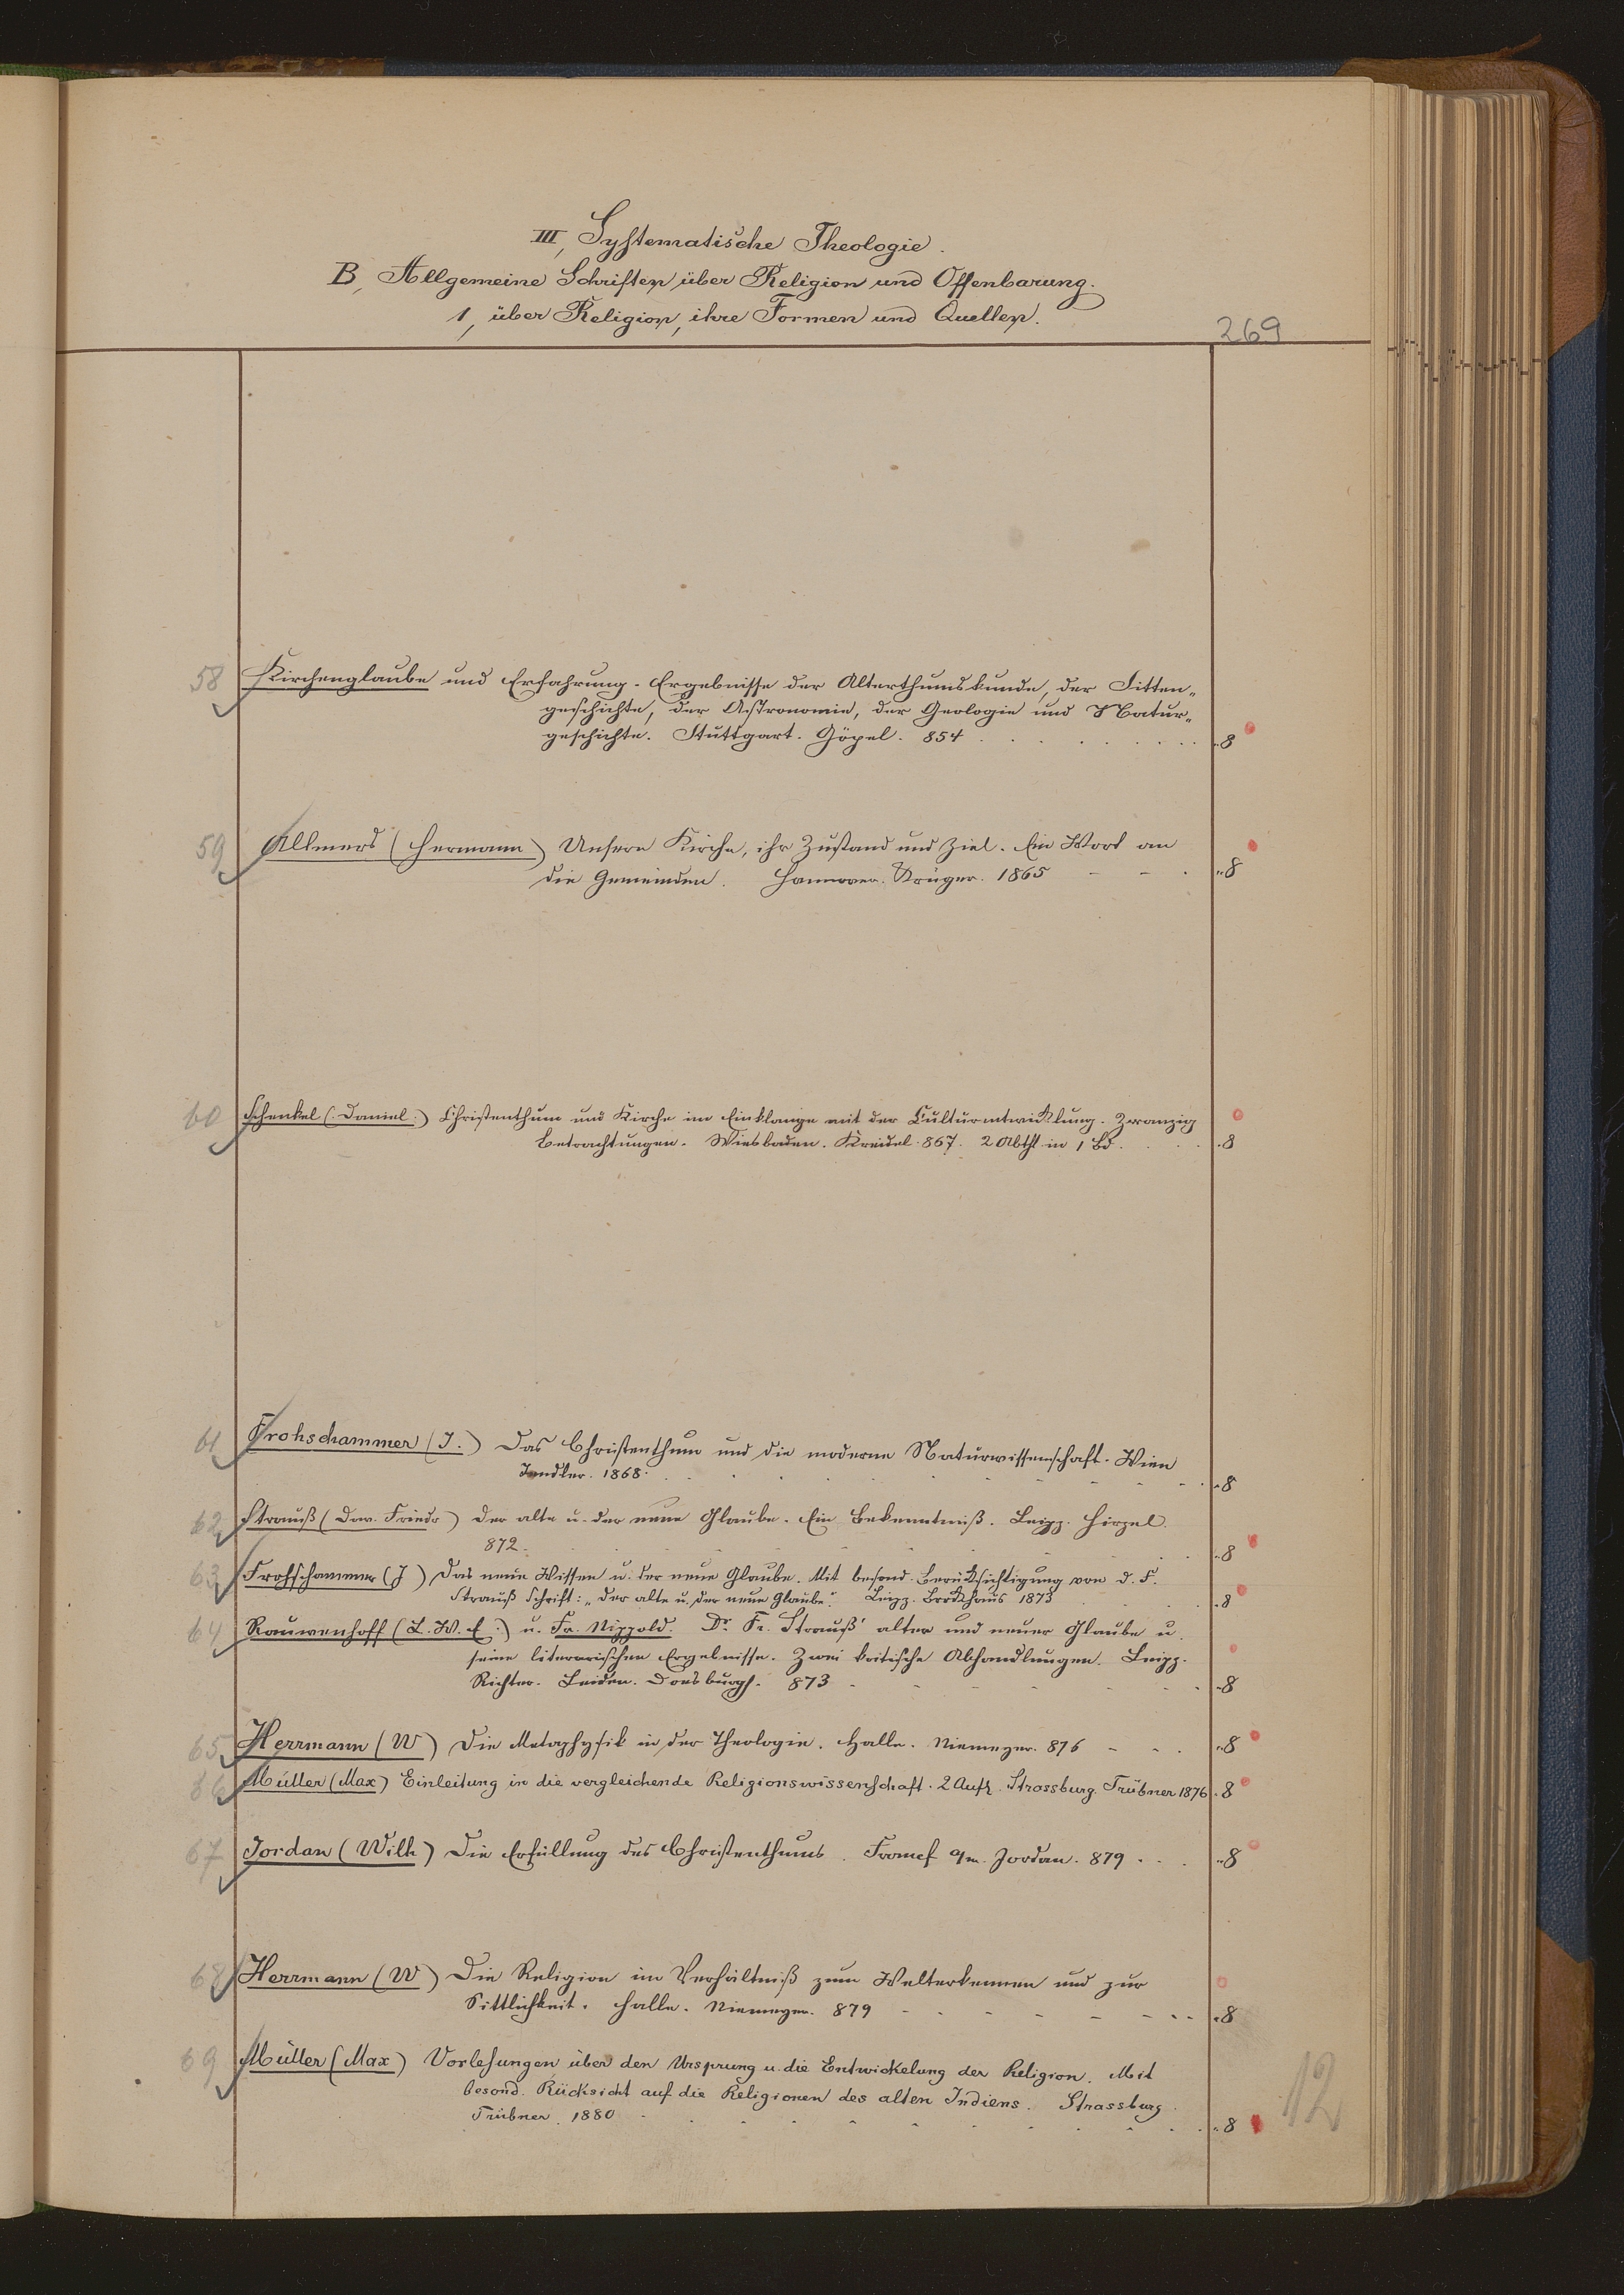 III, Systematische Theologie.
B, Allgemeine Schriften über Religion und Offenbarung.
1, über Religion, ihre Formen und Quellen.
269
58 Kirchenglaube und Erfahrung. Ergebnisse der Alterthumskunde, der Sitten„
geschichte, der Astronomie, der Geologie und Natur„
geschichte. Stuttgart. Göpel. 854 . . . . . . . . 8
59 Allmers (Hermann) Unsere Kirche, ihr Zustand und Ziel. Ein Wort an
die Gemeinden. Hannover. Krüger. 1865 - - . 8
60 Schenkel (: Daniel :) Christenthum und Kirche im Einklange mit der Culturentwicklung. Zwanzig
Betrachtungen. Wiesbaden. Kreidel. 867. 2 Abthl. in 1 Bd. . . . 8
61 Frohschammer (J.) Das Christenthum und die moderne Naturwissenschaft. Wien
Tendler. 1868. . . . . . . . 8
62 Strauß (Dav. Friedr) Der alte u. der neue Glaube. Ein Bekenntniß. Leipz. Hirzel.
872. . . . . . . . 8
63 Frohschammer (J) Das neue Wissen u. der neue Glaube. Mit besond. Berücksichtigung von D. F.
Strauß Schrift: „Der alte u. der neue Glaube.“ Leipz. Brockhaus 1873 . . . 8
64 Rauwenhoff (L. W. E.) u. Fr. Nippold. Dr. Fr. Strauß' alter und neuer Glaube u.
seine literarischen Ergebnisse. Zwei kritische Abhandlungen. Leipz.
Richter. Leiden. Doesburgh. 873 - - - - . . 8
65 Herrmann (W) Die Metaphysik in der Theologie. Halle. Niemeyer. 876 - - . 8
66 Müller (Max) Einleitung in die vergleichende Religionswissenschaft. 2 Aufl. Strassburg. Trübner 1876 . 8
67 Jordan (Wilh) Die Erfüllung des Christenthums. Frankf a/m. Jordan. 879 . . . 8
68 Herrmann (W) Die Religion im Verhältniß zum Welterkennen und zur
Sittlichkeit. Halle. Niemeyer. 879 - - - - - . . 8
69 Müller (Max) Vorlesungen über den Ursprung u. die Entwickelung der Religion. Mit
besond. Rücksicht auf die Religionen des alten Indiens. Strassburg.
Trübner. 1880 . . . . . . . . 8
12